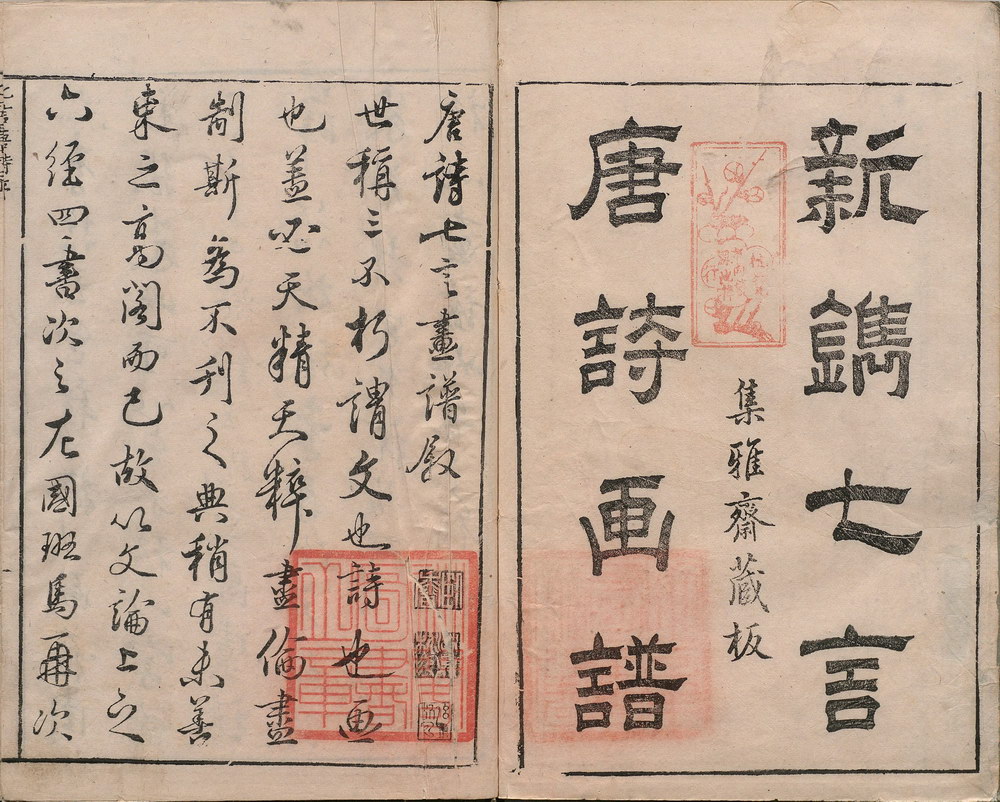 新鐫七言
集雅齋藏板
唐詩画譜
唐詩七言畫譜叙
世稱三不朽謂文也詩也画
也蓋必天精天粹盡倫盡
制斯為不刊之典稍有未善
束之高閣而已故以文論上之
六經四書次之左國班馬再次